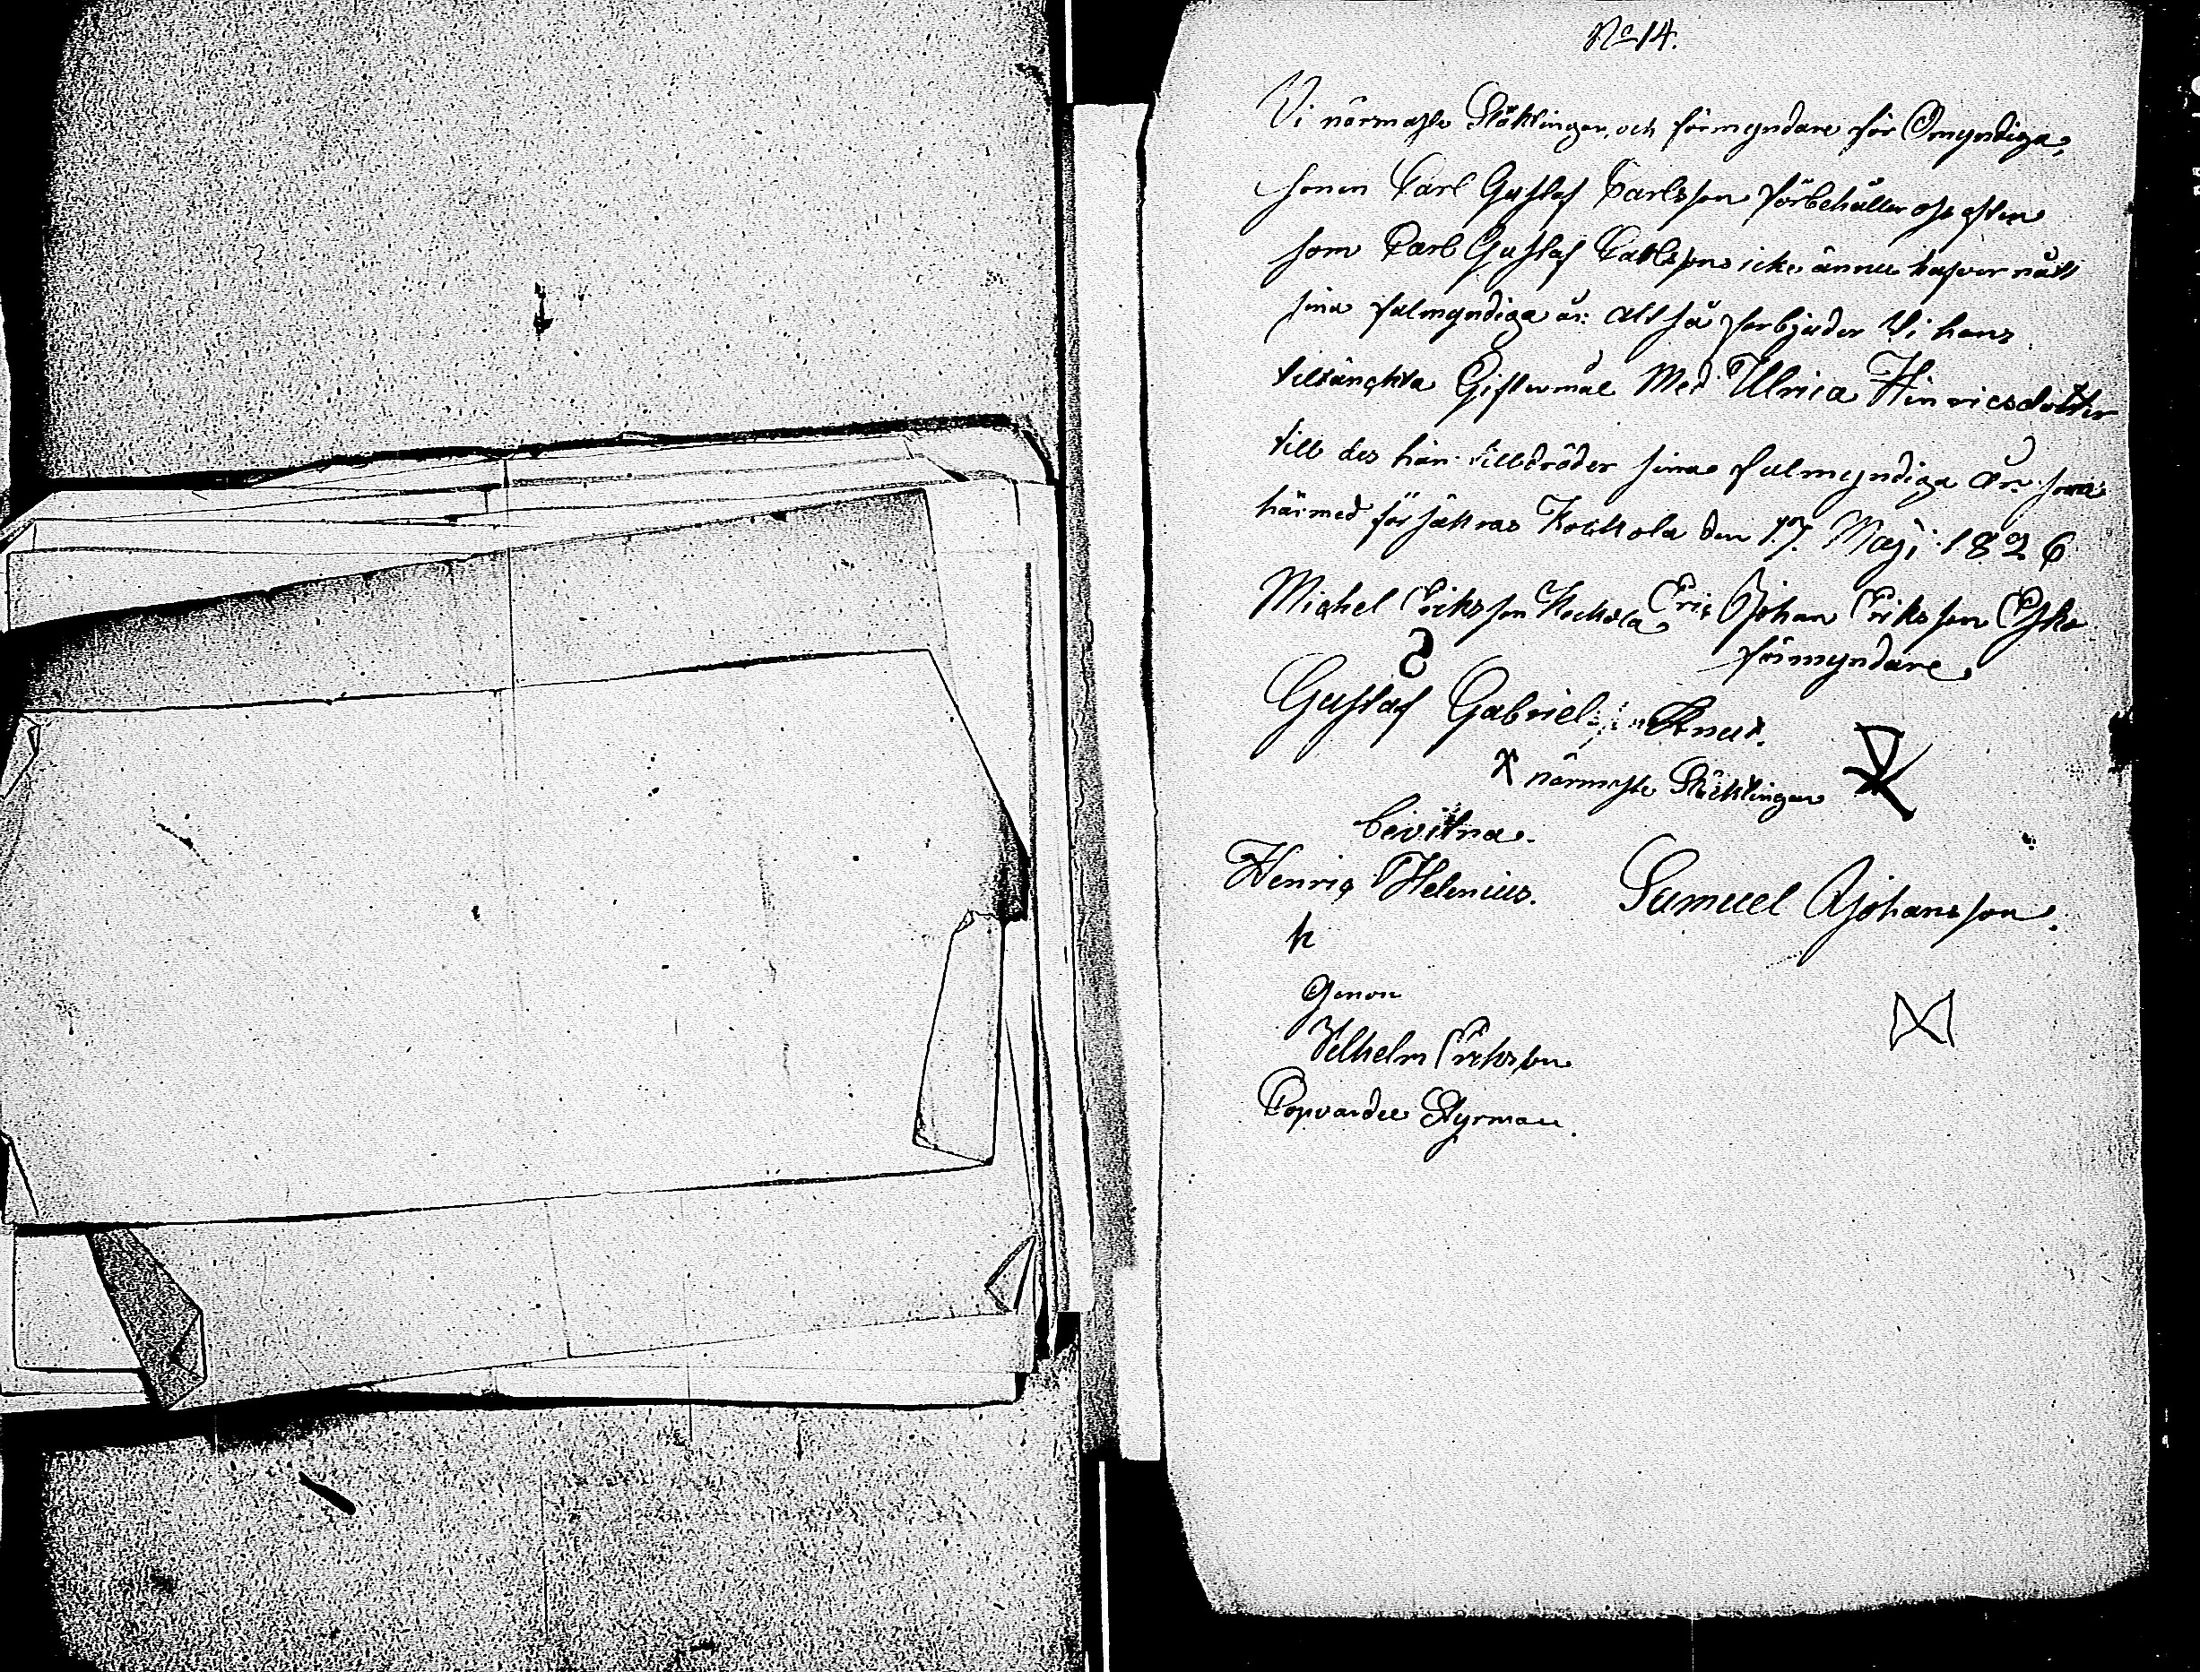 No 14.
Vi närmaste Släktingar, och förmyndare för Omyndiga,
sonen Carl Gustaf Carlsson förbehåller oss
som Carl Gustaf Carlsson icke ännu hafver nått
sina fulmyndiga år: Alt så förbjuder Vi hans
tiltänchta Giftermål Med Ulrica Hinricsdotter
till des han tilldräder sinna fulmyndiga År: som
härmed försäkras Kockola den 17. Maji 1826
Michel Eriksson Kockola Eric Johan Eriksson
förmyndare
Gustaf Gabriel Knut.
X närmste Släcktingar
bevitna.
Henriq Helenius. Samuel Johansson.
h
Genon
Vilhelm Eriksson
Styrman.